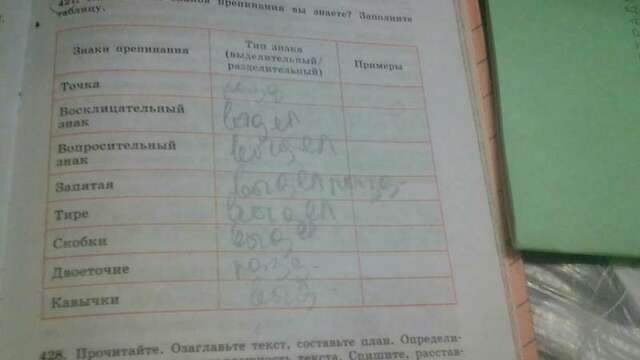 знаков препинания вы знаете? Заполните
таблицу.
Знаки препинания
Тип знака
(выделительный/
разделительный)
Примеры
Точка
разд
Восклицательный
знак
выдел
Вопросительный
знак
выдел
Запятая
выдел разд.
Тире
выдел
Скобки
выдел
Двоеточие
разд.
Кавычки
выд.
428. Прочитайте. Озаглавьте текст, составьте план. Определи-
текста. Спишите, расстав-